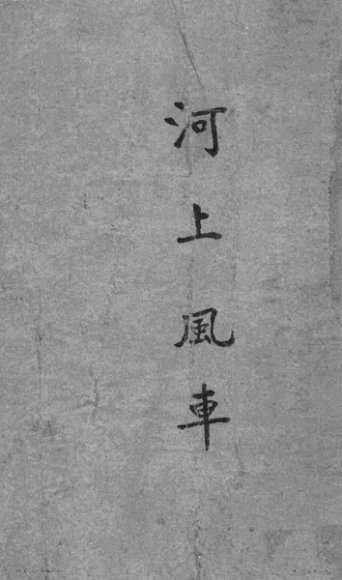 河上風車